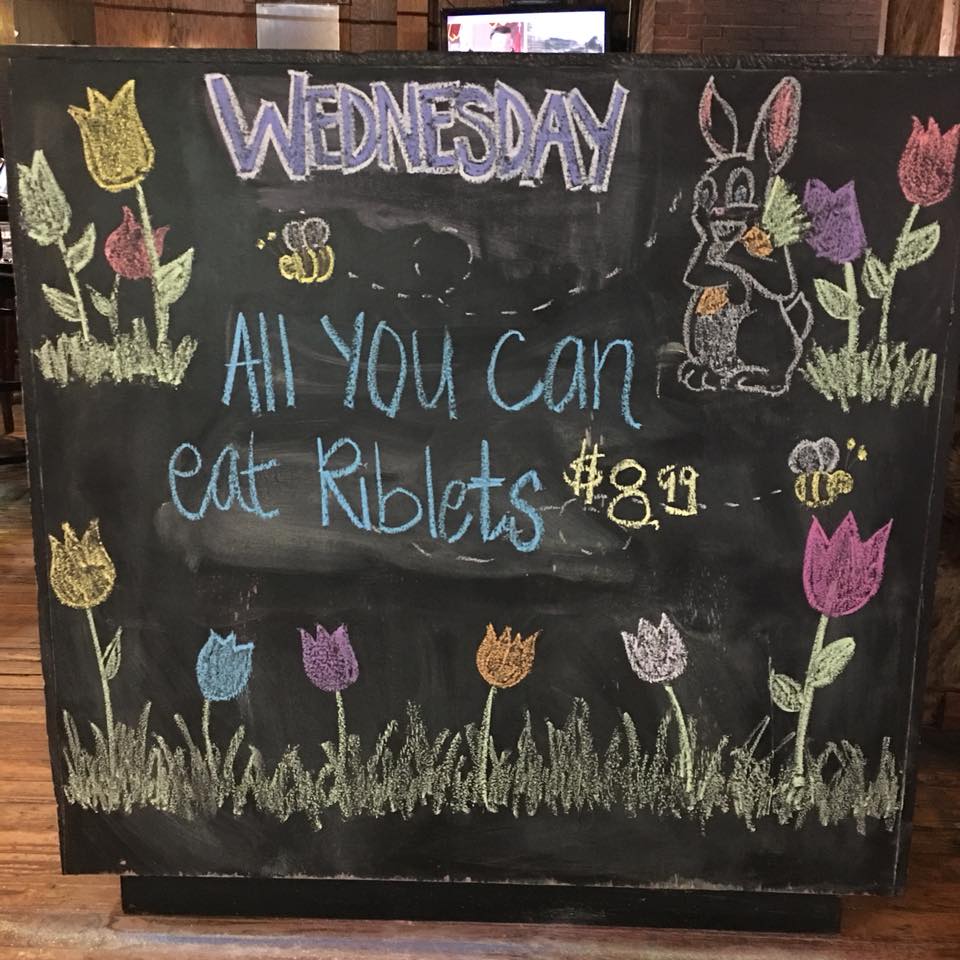 WEDNESDAY
All YOU Can
eat Riblets $8.99